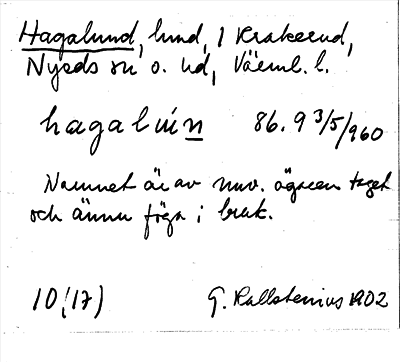 Hagalund, lund, 1 Krakerud,
Nyeds sn o. hd, Värml. l.
hagalún 86.9 3/5/960
Namnet är av nuv. ägaren taget
och ännu föga i bruk.
10(17) G. Kallstenius 1902